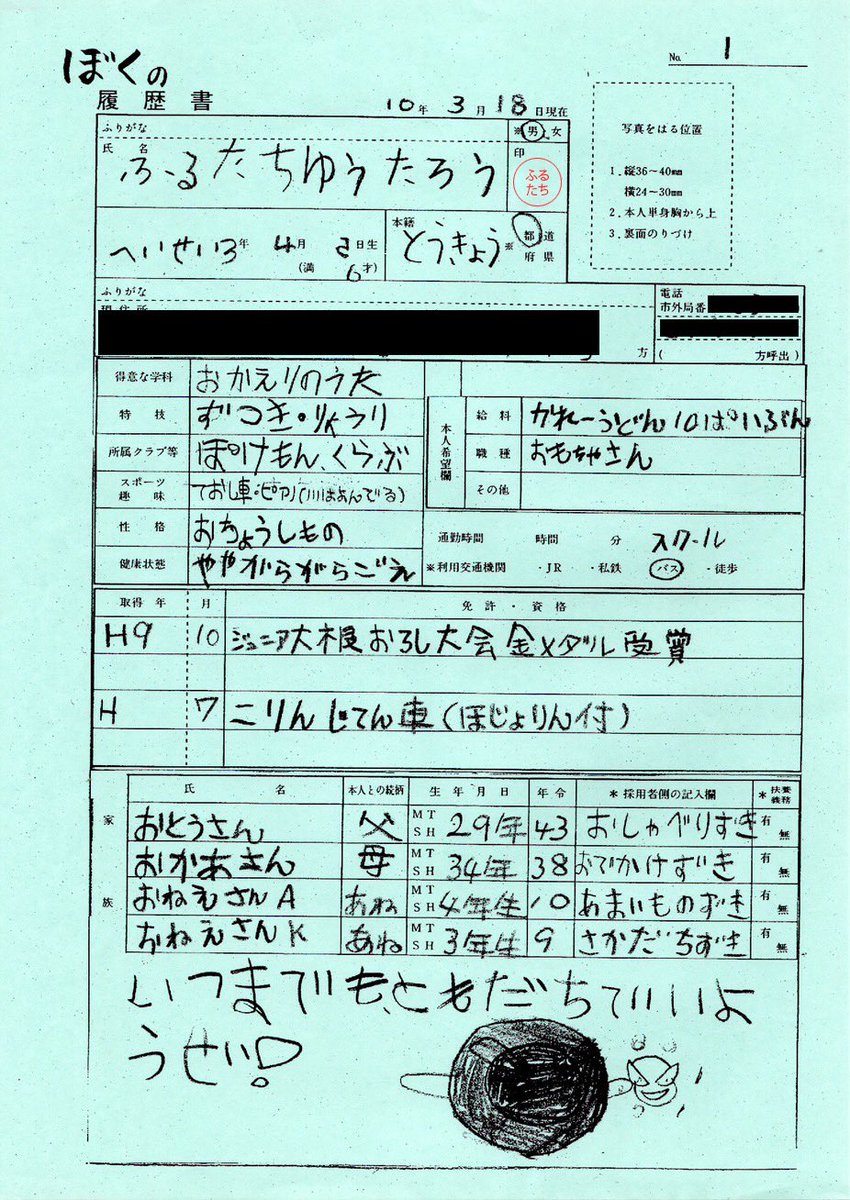 ぼくの
No. 1
履歴書
10年 3月 18日現在
ふりがな
※男・女
氏名 ふるたちゆうたろう
印
ふる
たち
写真をはる位置
1. 縦36～40mm
横24～30mm
2. 本人単身胸から上
3. 裏面のりづけ
へいせい3年 4月 2日生
(満 6才)
本籍
とうきょう ※ 都道
府県
ふりがな
電話
市外局番
方
( 方呼出)
得意な学科 おかえりのうた
特技 ずつき・りょうり
所属クラブ等 ぽけもん、くらぶ
スポーツ
趣味
性格 おちょうしもの
健康状態 ややがらがらごえ
本人希望欄
給料 かれーうどん10ぱいぶん
職種 おもちゃさん
その他
通勤時間 時間 分 スクール
※利用交通機関 ・JR ・私鉄 バス ・徒歩
取得年 月 免許・資格
H9 10 ジュニア大根おろし大会金メダル受賞
H 7 二りんじてん車(ほじょりん付)
家族
氏名 本人との続柄 生年月日 年令 *採用者側の記入欄 *扶養義務
おとうさん 父 MTSH 29年 43 おしゃべりずき 有 無
おかあさん 母 MTSH 34年 38 おでかけずき 有 無
おねえさんA あね MTSH 4年生 10 あまいものずき 有 無
おねえさんK あね MTSH 3年生 9 さかだちずき 有 無
いつまでも、ともだちでいいよ
うせい!